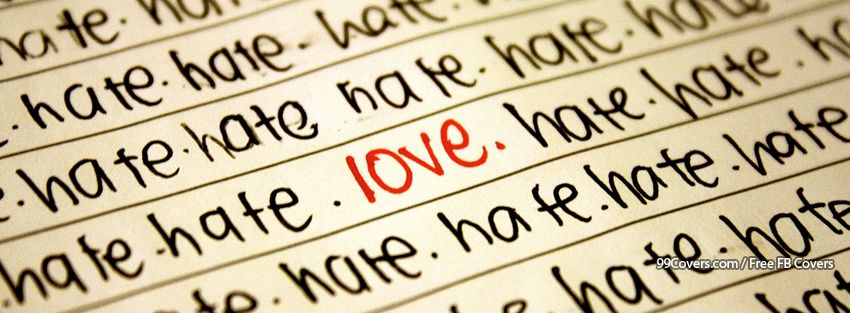 hate. hate
. hate. hate. hate.
. hate. hate hate. hate. hate
hate. hate. love. hate. hate. ha
hate. hate. hate. hate. hate
hate. hate. hate
99Covers.com / Free FB Covers